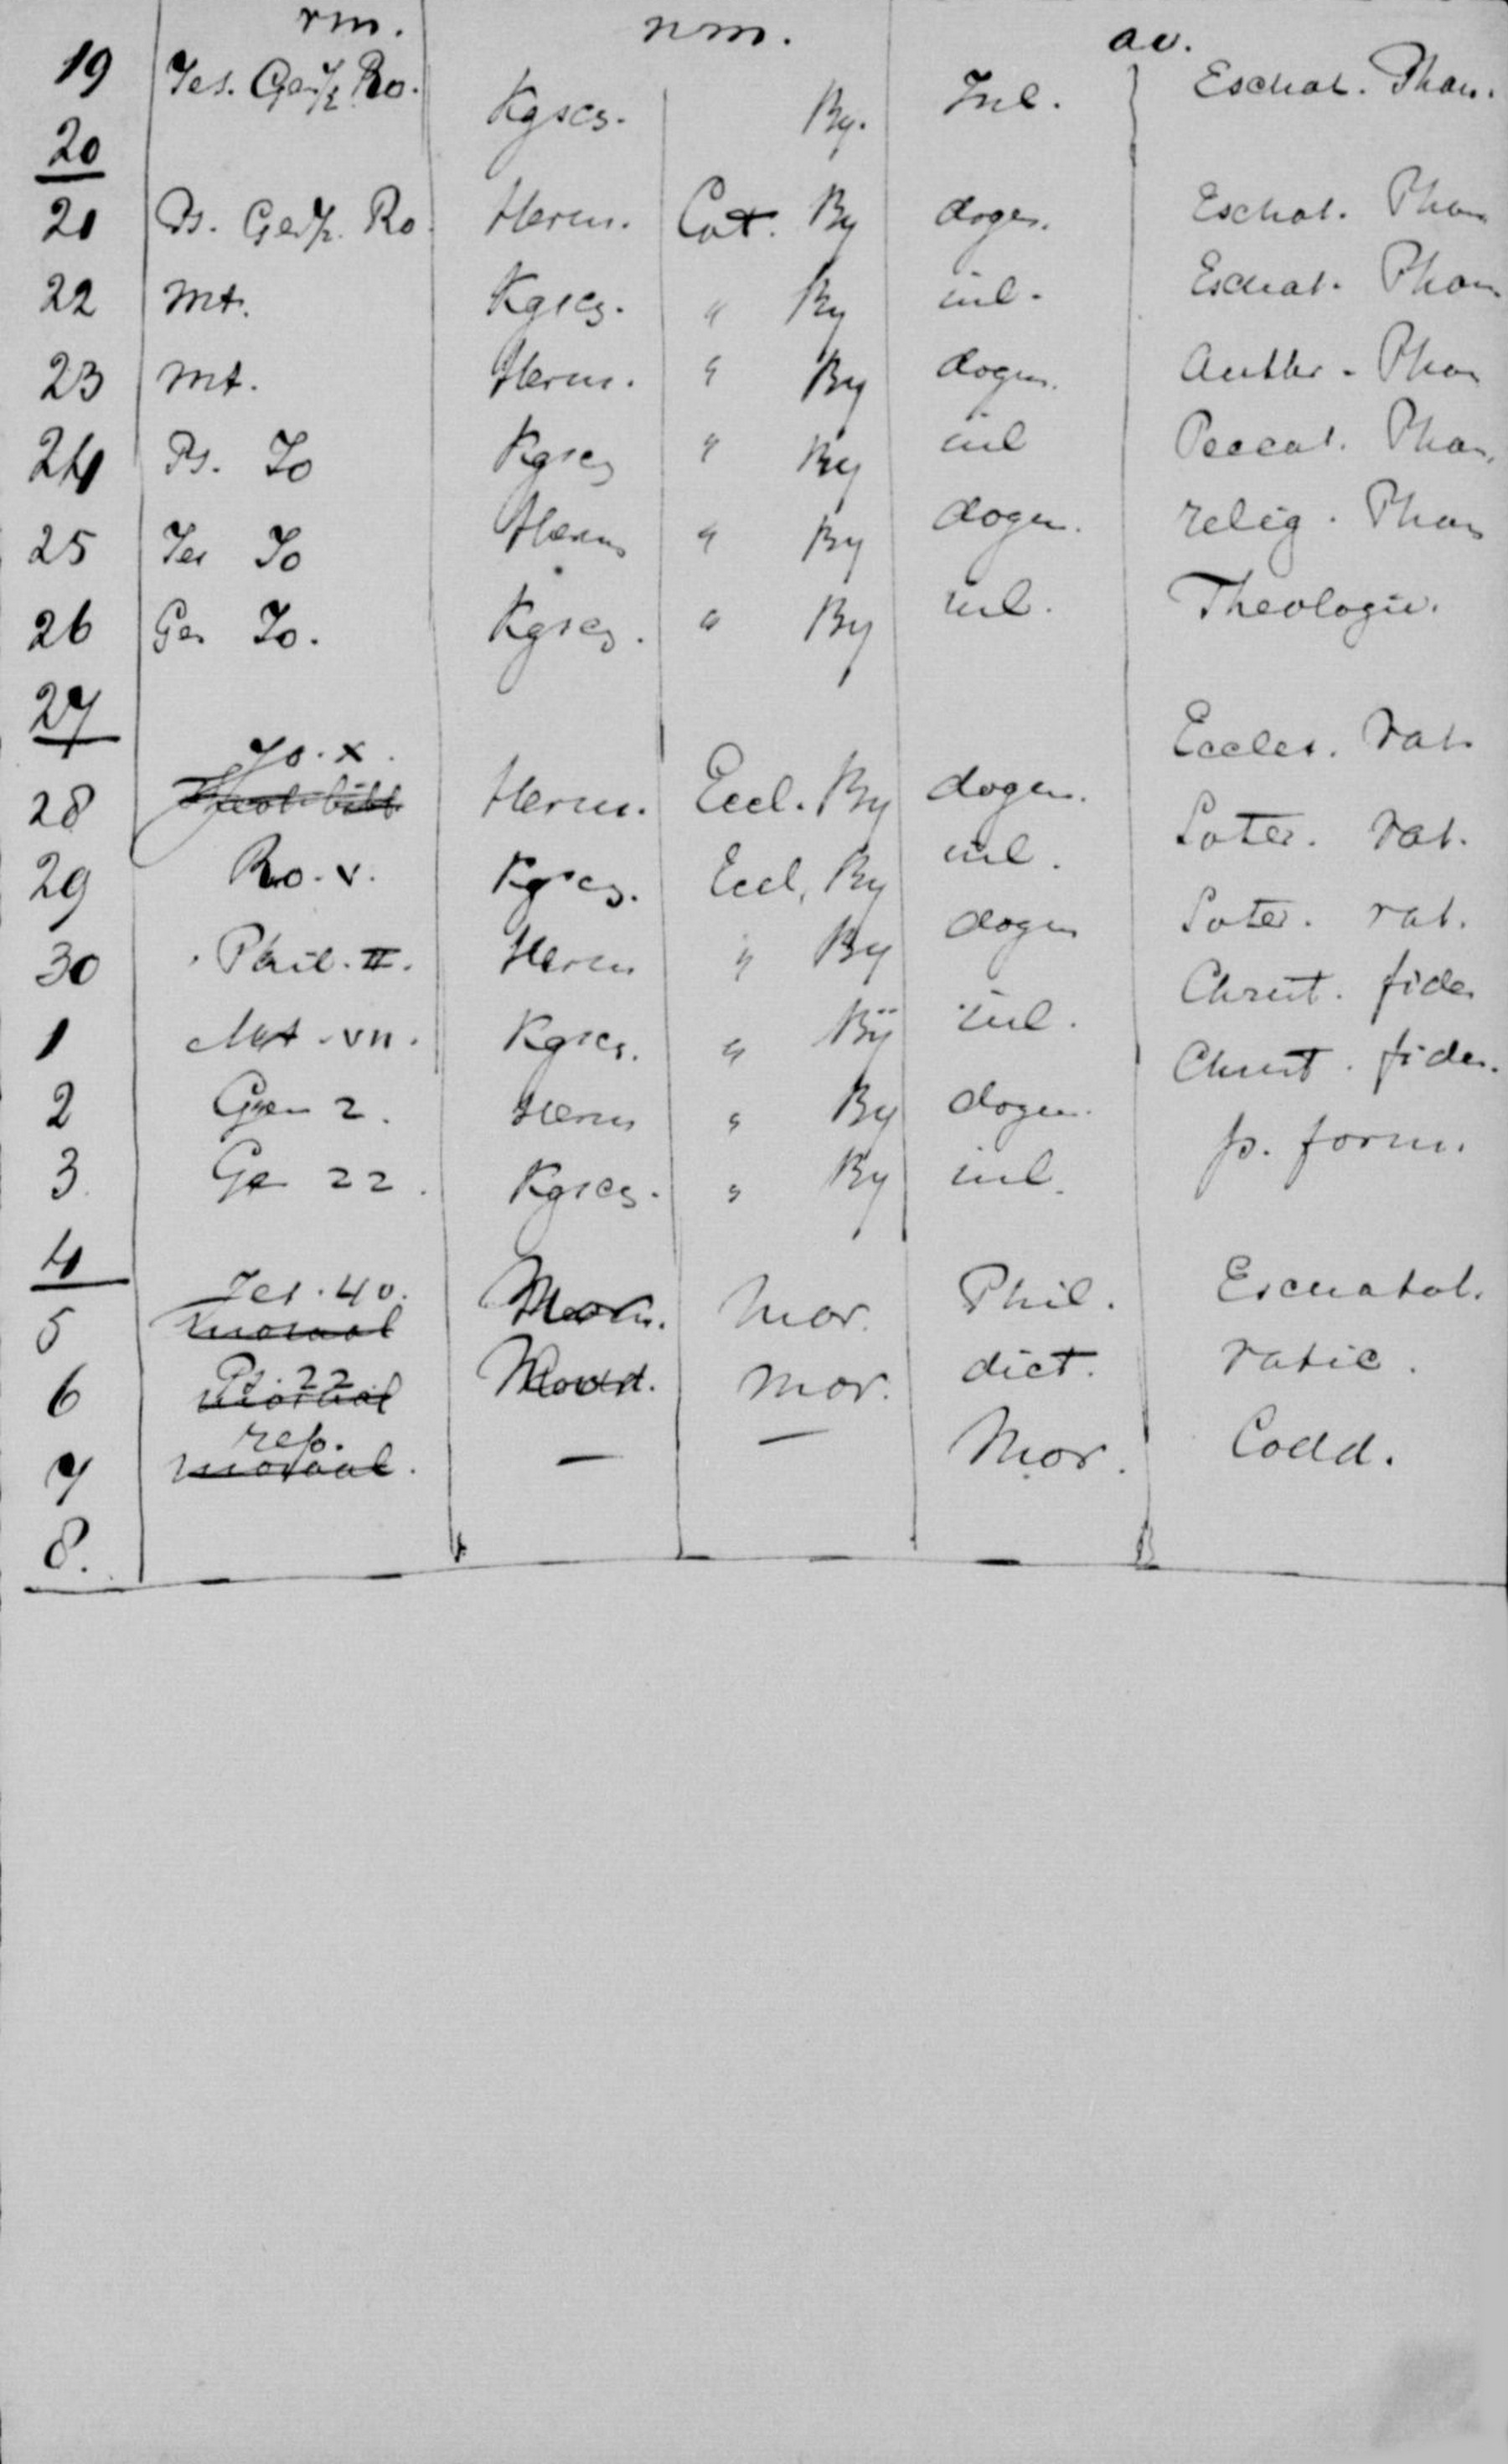 vm. nm. av.
19 Jes. Ge 1/2 Ro. Kgscs. By. Inl. Eschat. Phan.
20
21 Ps. Ge 1/2. Ro. Herm. Cat. By dogm. Eschat. Phan
22 Mt. Kgscs. " By inl. Eschat. Phan
23 Mt. Herm. " By dogm. Anthr. Phan
24 Ps. Jo Kgscs " By inl Peccat. Phan.
25 Jes Jo Herm " By dogm. relig. Phan
26 Ge Jo. Kgscs. " By inl. Theologie.
27
Jo. X. Eccles. rat.
28 Herm. Eccl. By dogm. Soter. rat.
29 Ro. V. Kgscs. Eccl. By inl. Soter. rat.
30 Phil. II. Herm " By dogm Christ. fides
1 Mt. VII. Kgscs. " By inl. Christ. fides.
2 Gen 2. Herm " By dogm. p. form.
3 Ge 22. Kgscs. " By inl.
4
Jes. 40.
5 moraal Mor. Phil. Eschatol.
Ps. 22
6 moraal Mor. dict. ratic.
rep.
7 moraal. — — Mor. Codd.
8.